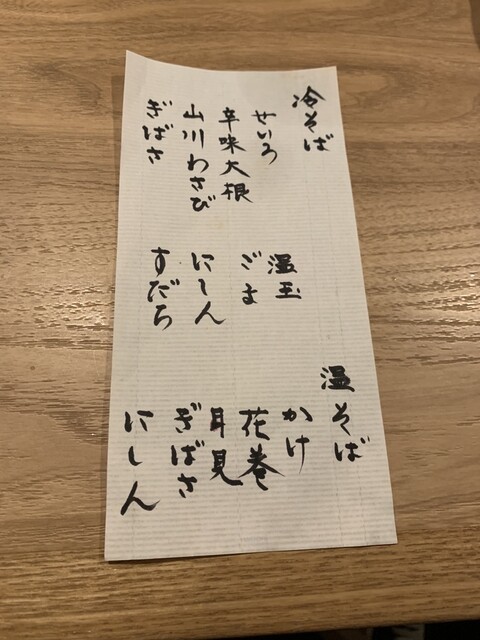 冷そば
せいろ
辛味大根
山川わさび
ぎばさ
温玉
ごま
にしん
すだち
温そば
かけ
花巻
耳見
ぎばさ
にしん